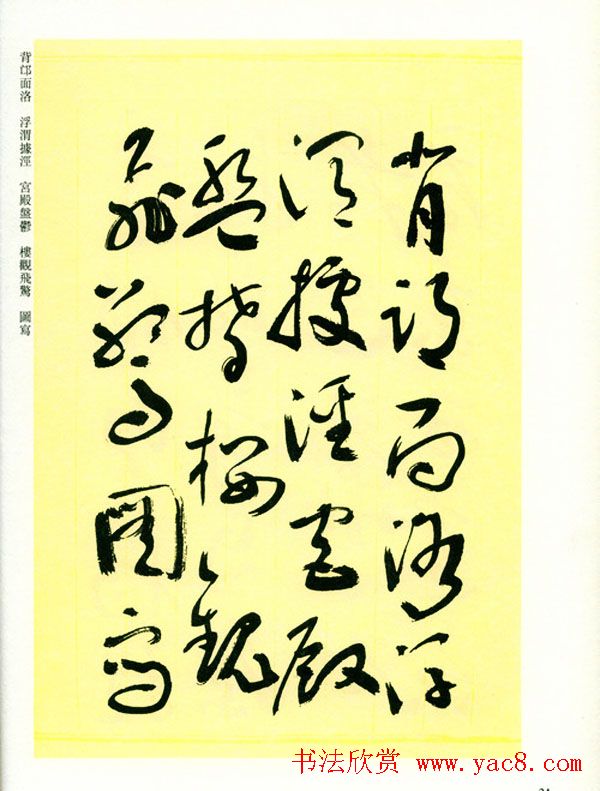 背邙面洛浮
渭據涇宮殿
盤鬱樓觀
飛驚圖寫
背邙面洛 浮渭據涇 宮殿盤鬱 樓觀飛驚 圖寫
书法欣赏 www.yac8.com